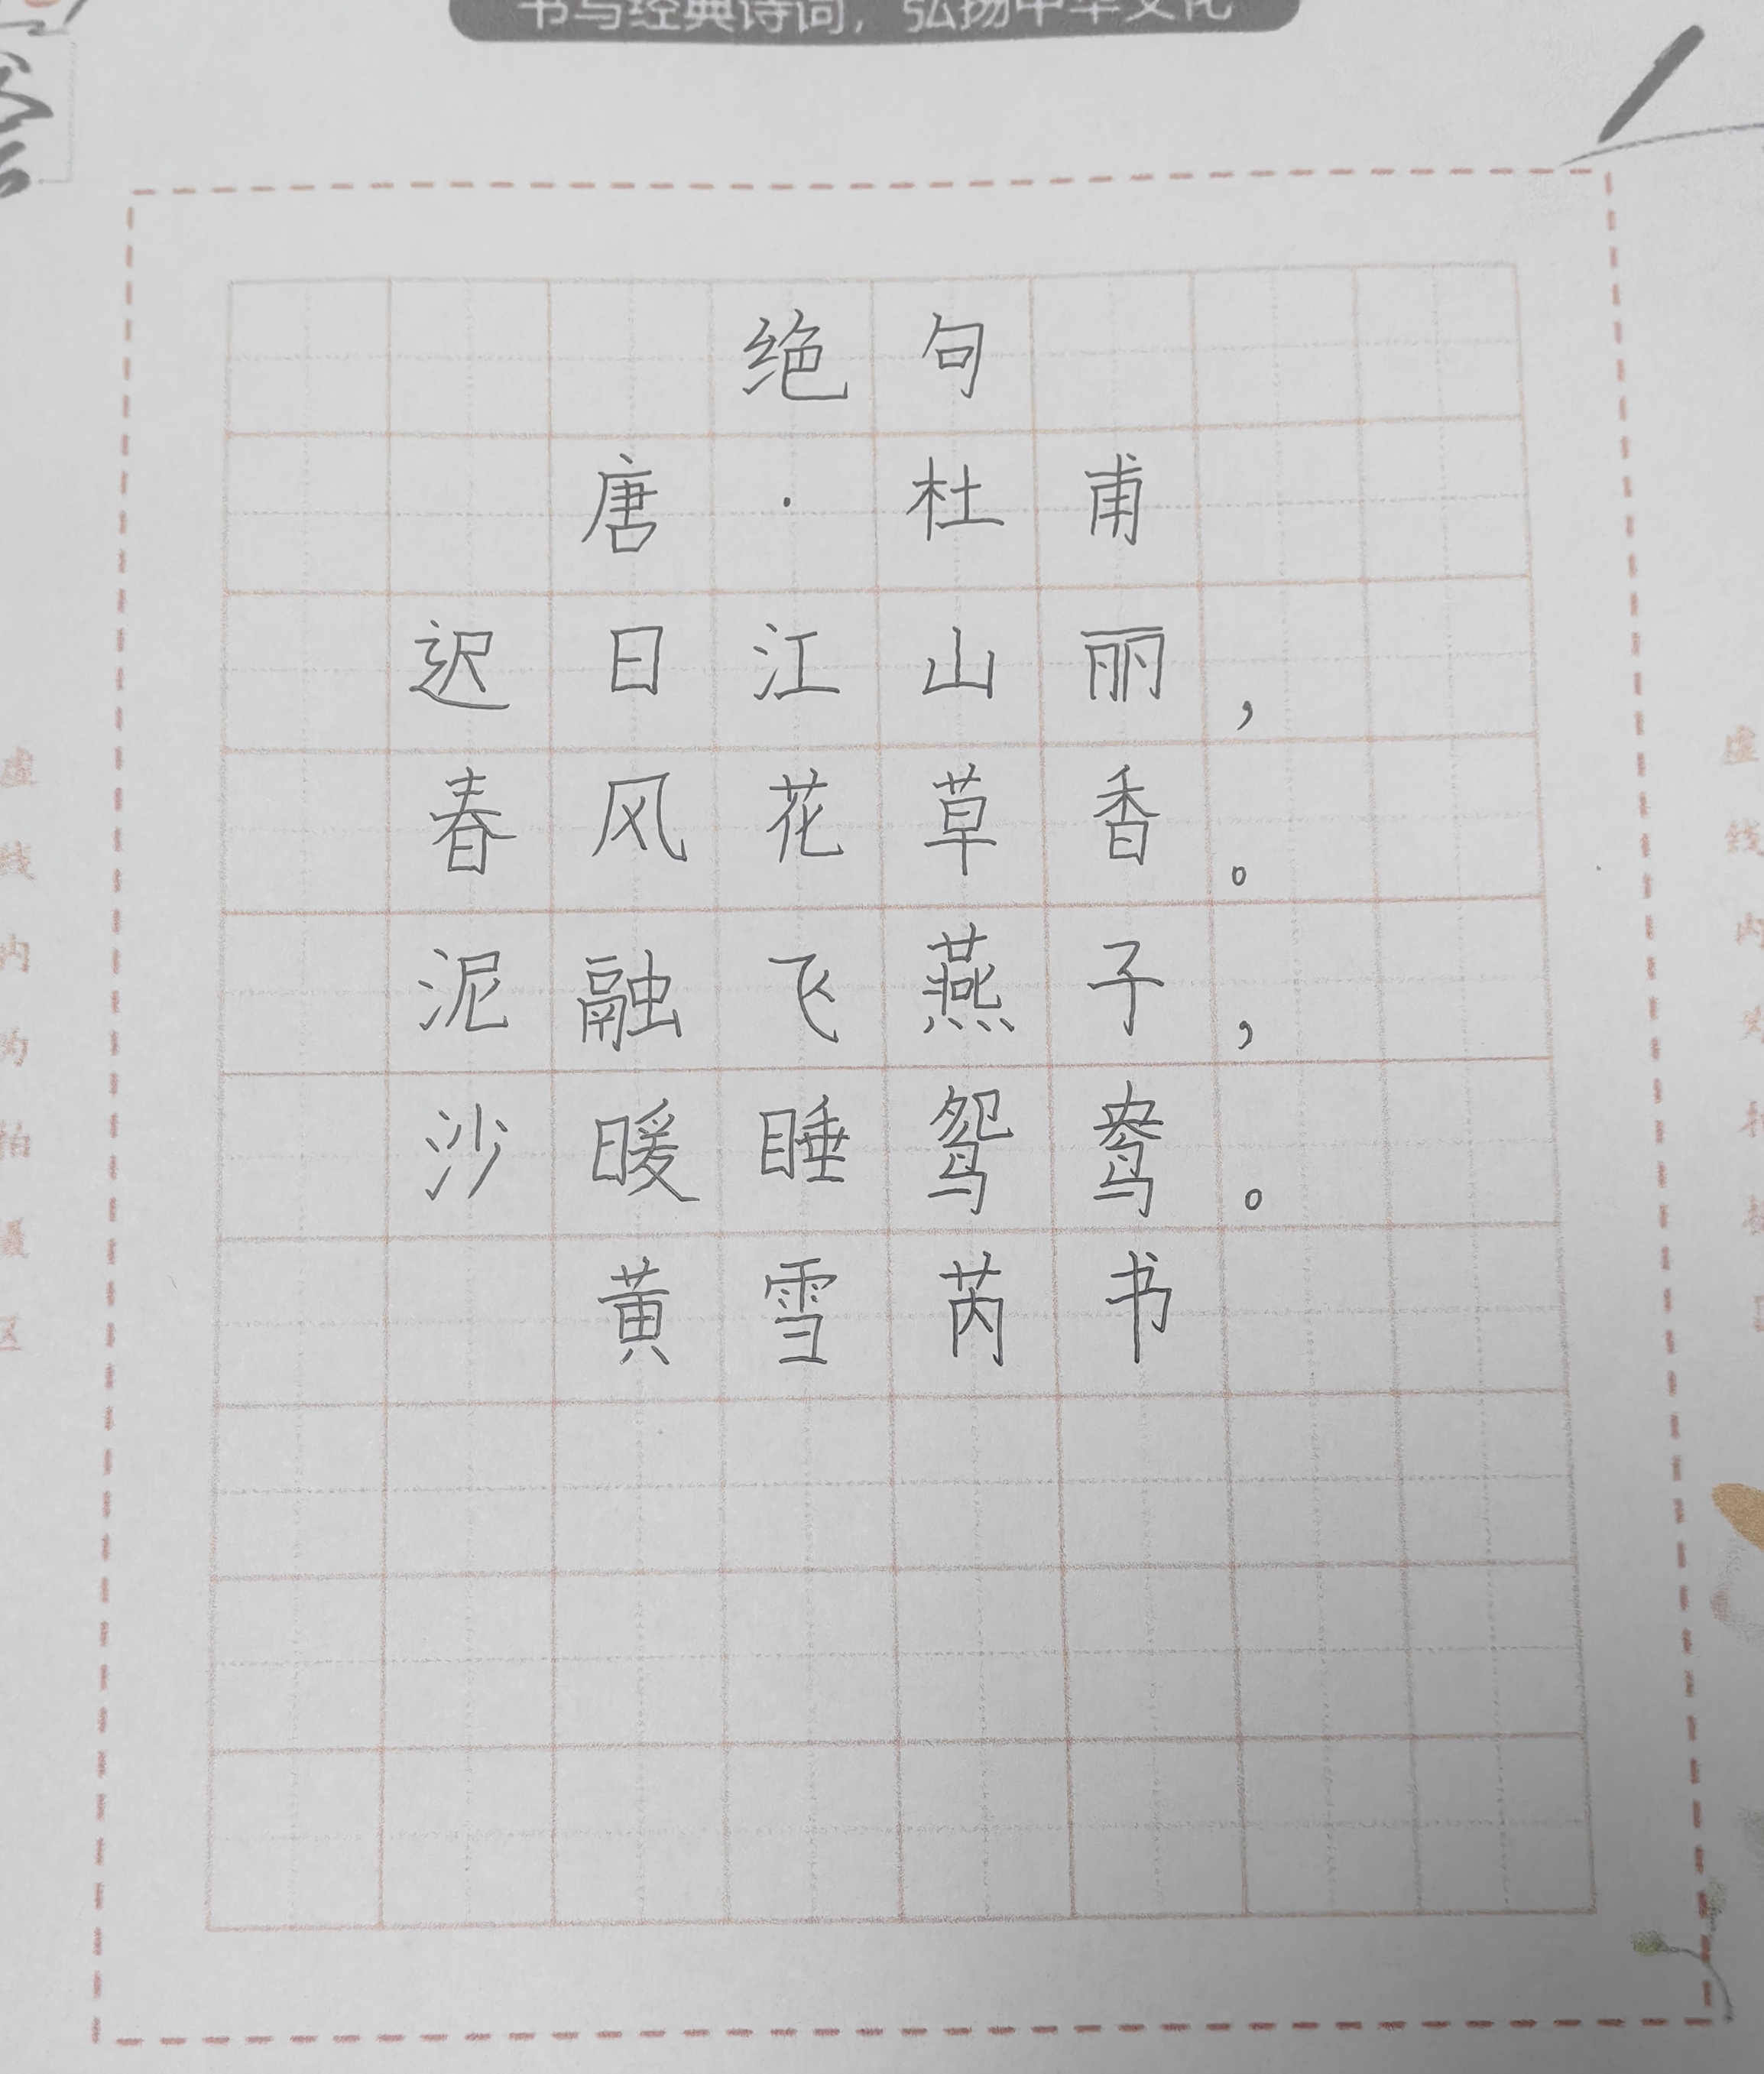 书写经典诗词，弘扬中华文化
绝句
唐·杜甫
迟日江山丽，
春风花草香。
泥融飞燕子，
沙暖睡鸳鸯。
黄雪芮书
虚线内为拍摄区
虚线内为拍摄区